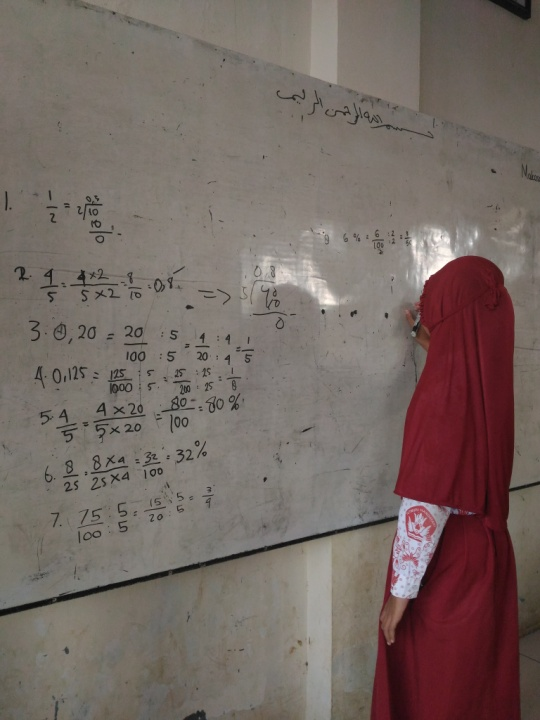 بسم الله الرحمن الرحيم
1. 1/2 = 2√10 0,5 10 0
2. 4/5 = 4×2/5×2 = 8/10 = 0,8 => 5√40 0,8 40 0
3. 0,20 = 20/100 : 5/5 = 4/20 : 4/4 = 1/5
4. 0,125 = 125/1000 : 5/5 = 25/200 : 25/25 = 1/8
5. 4/5 = 4×20/5×20 = 80/100 = 80%
6. 8/25 = 8×4/25×4 = 32/100 = 32%
7. 75/100 : 5/5 = 15/20 : 5/5 = 3/4